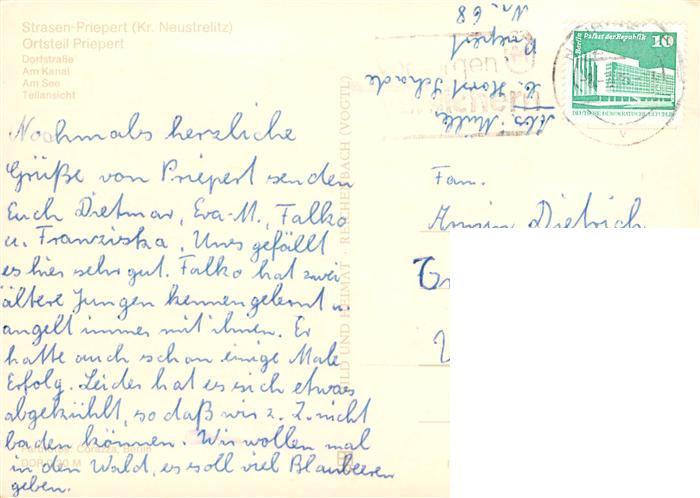 Strasen-Priepert (Kr. Neustrelitz)
Ortsteil Priepert
Dorfstraße
Am Kanal
Am See
Teilansicht
Nochmals herzliche
Grüße von Priepert senden
Euch Dietmar, Eva-M., Falko
u. Franziska. Uns gefällt
es hier sehr gut. Falko hat zwei
ältere Jungen kennengelernt u.
angelt immer mit ihnen. Er
hatte auch schon einige Male
Erfolg. Leider hat es sich etwas
abgekühlt, so daß wir z. Z. nicht
baden können. Wir wollen mal
in den Wald, es soll viel Blaubeeren
geben.
Corazza, Berlin
BILD UND HEIMAT · REICHENBACH (VOGTL)
Abs. Müller
b. Horst Schade
Priepert
Nr. 68
sichern
Berlin Palast der Republik 10
DEUTSCHE DEMOKRATISCHE REPUBLIK
Fam.
Armin Dietrich